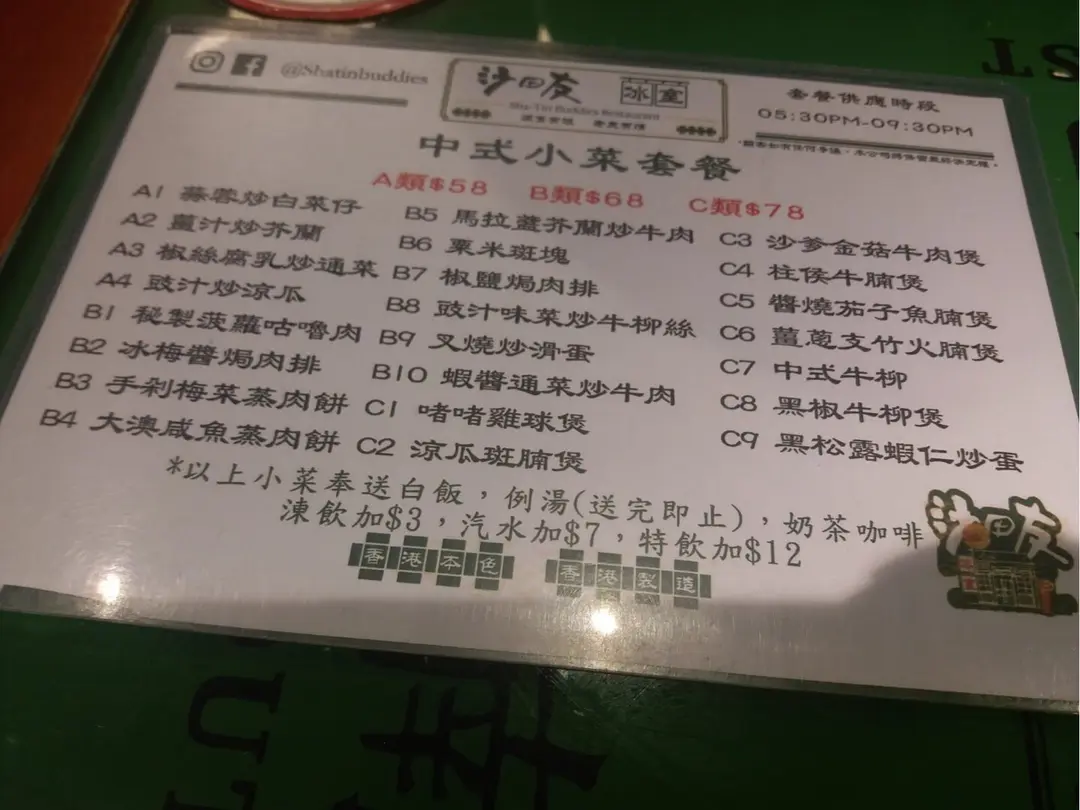 @Shatinbuddies
沙田友
冰室
Sha Tin Buddies Restaurant
套餐供應時段
05:30PM-09:30PM
中式小菜套餐
A類$58
B類$68
C類$78
A1 蒜蓉炒白菜仔
A2 薑汁炒芥蘭
A3 椒絲腐乳炒通菜
A4 豉汁炒涼瓜
B1 秘製菠蘿咕嚕肉
B2 冰梅醬焗肉排
B3 手剁梅菜蒸肉餅
B4 大澳咸魚蒸肉餅
B5 馬拉盞芥蘭炒牛肉
B6 粟米斑塊
B7 椒鹽焗肉排
B8 豉汁味菜炒牛柳絲
B9 叉燒炒滑蛋
B10 蝦醬通菜炒牛肉
C1 啫啫雞球煲
C2 涼瓜斑腩煲
C3 沙爹金菇牛肉煲
C4 柱侯牛腩煲
C5 醬燒茄子魚腩煲
C6 薑蔥支竹火腩煲
C7 中式牛柳
C8 黑椒牛柳煲
C9 黑松露蝦仁炒蛋
*以上小菜奉送白飯，例湯(送完即止)，奶茶咖啡
凍飲加$3，汽水加$7，特飲加$12
香港本色
香港製造
沙田友
ST